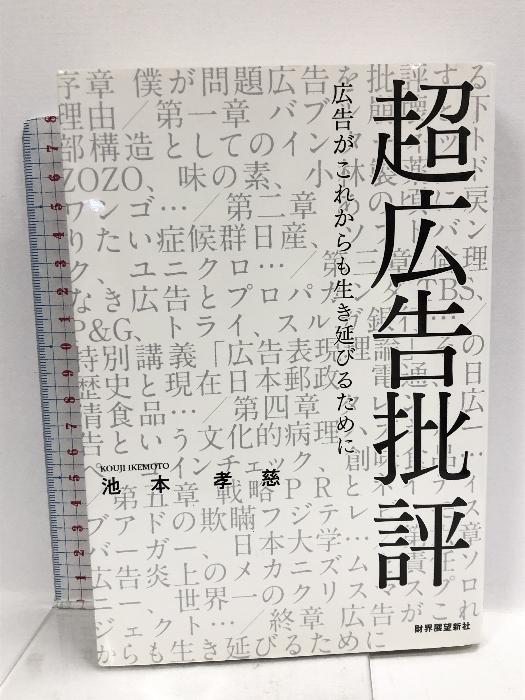 超広告批評
広告がこれからも生き延びるために
KOUJI IKEMOTO
池本孝慈
財界展望新社
序章 僕が問題広告を批評する
理由／第一章 バブ
部構造としてのイン
ZOZO、味の素、小林製薬、ド
ワンゴ…／第二章 あの頃に戻
りたい症候群日産、ソフトバン
ク、ユニクロ…／第三章
なき広告とプロパガンダTBS、
P&G、トライ、スルガ銀行…／
特別講義「広告表現理論」その
歴史と現在日本郵政、電通、日
清食品…／第四章
告という文化的病理
／第五章 戦略PR
ブーバーガー、日本
広告炎上のメカニズム
ニー、世界一
ジェクト…／終章 広告がこれ
からも生き延びるために
8 7 6 5 4 3 2 1 0 9 8 7 6 5 4 3 2 1